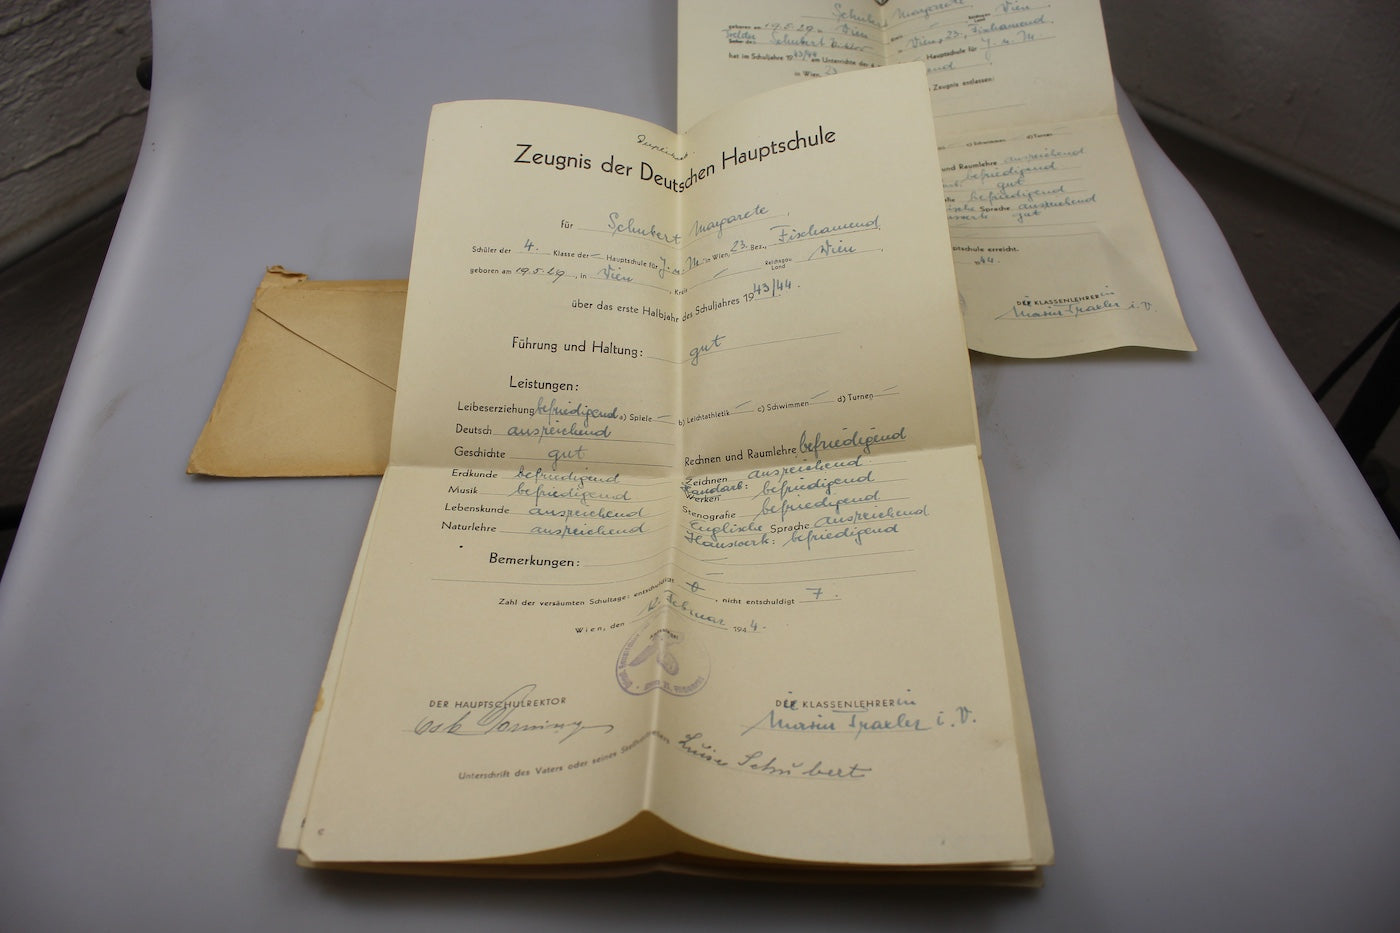 Schubert Margarete
geboren am 19.5.29 in Wien Reichsgau Land Wien
Schubert Viktor Wien, 23., Fischamend
hat im Schuljahre 1943/44 am Unterrichte der Hauptschule für J. u. M.
in Wien, 23
Zeugnis entlassen:
c) Schwimmen d) Turnen
und Raumlehre ausreichend
befriedigend
gut
befriedigend
Sprache ausreichend
gut
erreicht.
44.
DIE KLASSENLEHRERin
Maria Traxler i. V.
Duplikat.
Zeugnis der Deutschen Hauptschule
für Schubert Margarete,
Schüler der 4. Klasse der — Hauptschule für J. u. M. in Wien, 23. Bez., Fischamend
geboren am 19.5.29, in Wien, Kreis — Reichsgau Land Wien,
über das erste Halbjahr des Schuljahres 1943/44.
Führung und Haltung: gut
Leistungen:
Leibeserziehung befriedigend a) Spiele — b) Leichtathletik — c) Schwimmen — d) Turnen —
Deutsch ausreichend
Geschichte gut
Erdkunde befriedigend
Musik befriedigend
Lebenskunde ausreichend
Naturlehre ausreichend
Rechnen und Raumlehre befriedigend
Zeichnen ausreichend.
Handarb: Werken befriedigend
Stenografie befriedigend
Englische Sprache ausreichend
Hauswerk: befriedigend
Bemerkungen: —
—
Zahl der versäumten Schultage: entschuldigt 0, nicht entschuldigt 7.
Wien, den Februar 1944.
DER HAUPTSCHULREKTOR
DIE KLASSENLEHRERin
Maria Traxler i. V.
Unterschrift des Vaters oder seines Stellvertreters Luise Schubert